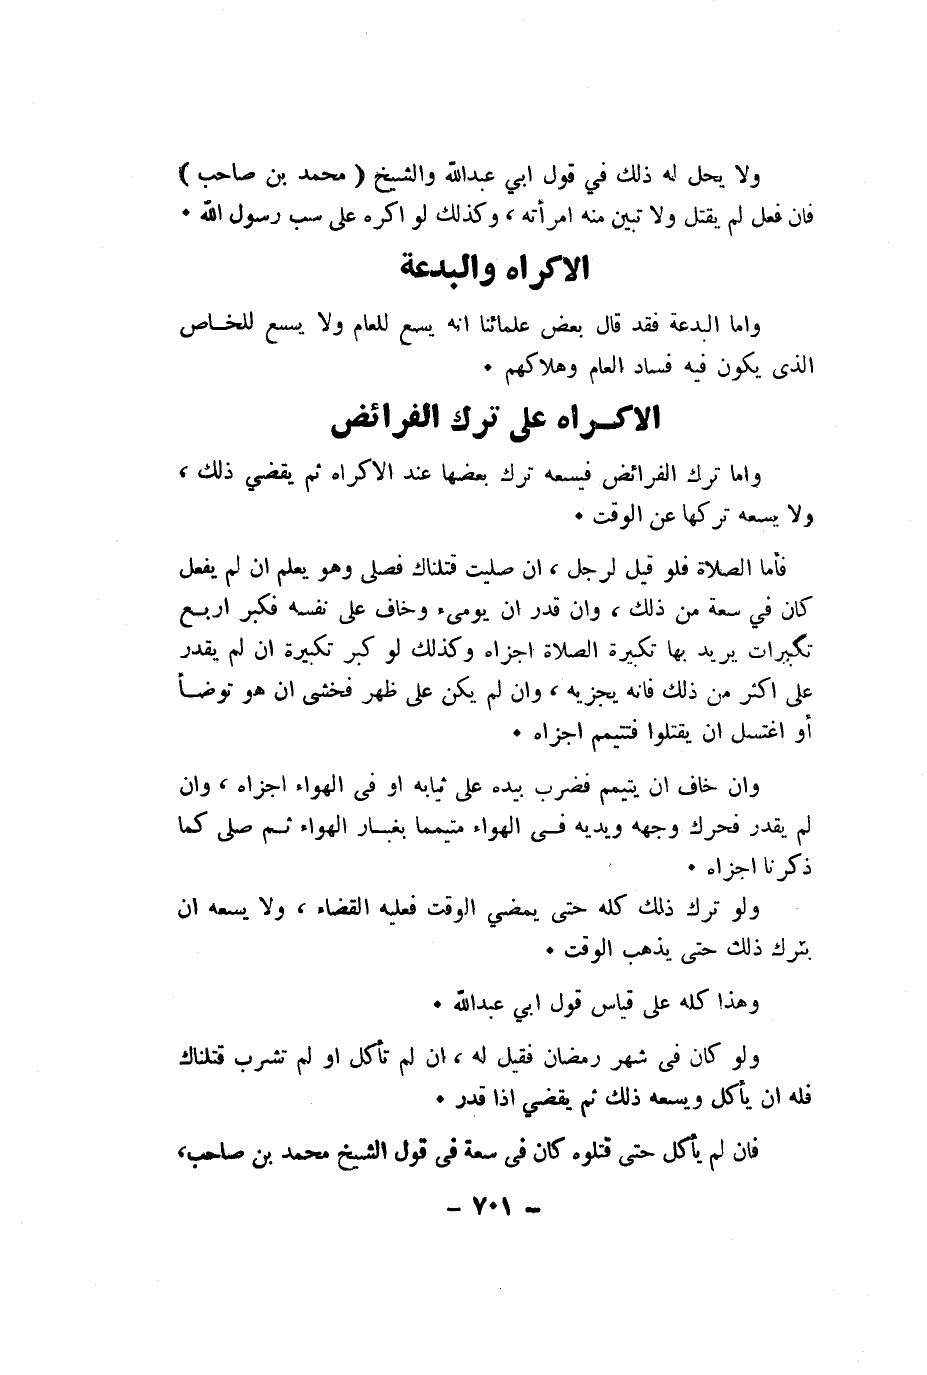 ولا يحل له ذلك في قول ابي عبدالله والشيخ ( محمد بن صاحب )
فان فعل لم يقتل ولا تبين منه امرأته ، وكذلك لو اكره على سب رسول الله .
الاكراه والبدعة
واما البدعة فقد قال بعض علمائنا انه يسع للعام ولا يسع للخـاص
الذى يكون فيه فساد العام وهلاكهم .
الاكـراه على ترك الفرائض
واما ترك الفرائض فيسعه ترك بعضها عند الاكراه ثم يقضي ذلك ،
ولا يسعه تركها عن الوقت .
فأما الصلاة فلو قيل لرجل ، ان صليت قتلناك فصلى وهو يعلم ان لم يفعل
كان في سعة من ذلك ، وان قدر ان يومىء وخاف على نفسه فكبر اربـع
تكبرات يريد بها تكبيرة الصلاة اجزاه وكذلك لو كبر تكبيرة ان لم يقدر
على اكثر من ذلك فانه يجزيه ، وان لم يكن على ظهر فخشى ان هو توضـأ
أو اغتسل ان يقتلوا فتتيمم اجزاه .
وان خاف ان يتيمم فضرب بيده على ثيابه او فى الهواء اجزاه ، وان
لم يقدر فحرك وجهه ويديه فـى الهواء متيمما بغبـار الهواء ثـم صلى كما
ذكرنا اجزاه .
ولو ترك ذلك كله حتى يمضي الوقت فعليه القضاء ، ولا يسعه ان
يترك ذلك حتى يذهب الوقت .
وهذا كله على قياس قول ابي عبدالله .
ولو كان فى شهر رمضان فقيل له ، ان لم تأكل او لم تشرب قتلناك
فله ان يأكل ويسعه ذلك ثم يقضي اذا قدر .
فان لم يأكل حتى قتلوه كان فى سعة فى قول الشيخ محمد بن صاحب،
– ٧٠١ –